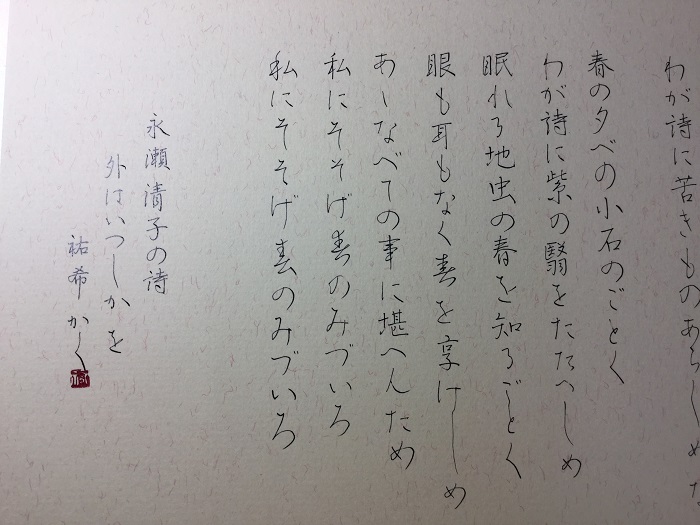 わが詩に苦きものあらしめな
春の夕べの小石のごとく
わが詩に紫の翳をたたへしめ
眠れる地虫の春を知るごとく
眼も耳もなく春を享けしめ
あしなべての事に堪へんため
私にそそげ春のみづいろ
私にそそげ春のみづいろ
永瀬清子の詩
外はいつしかを
祐希かく